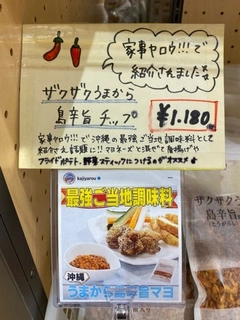 家事ヤロウ!!!で
紹介されました
ザクザクうまから
島辛旨チップ
¥1,180
家事ヤロウ!!!で沖縄の最強ご当地調味料として
紹介され話題に!!マヨネーズと混ぜて唐揚げや
フライドポテト、野菜スティックにつけるのがオススメ
kajiyarou
最強ご当地調味料
沖縄
うまから島辛旨マヨ
ザクザク
島辛旨